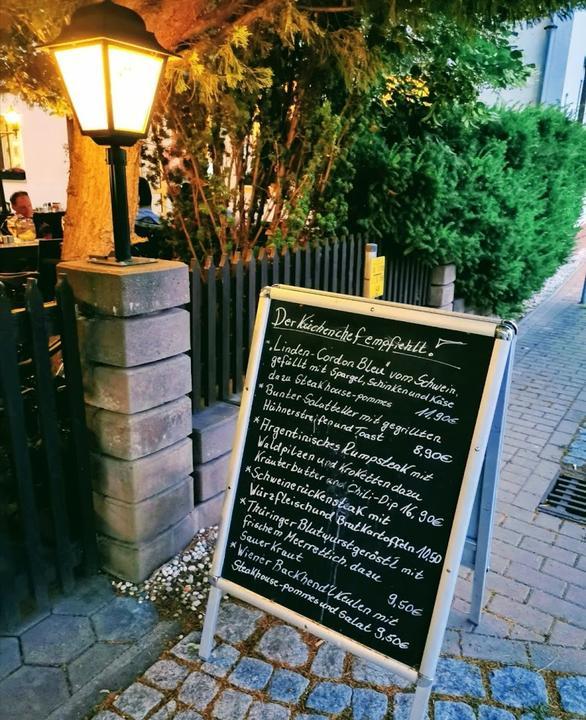 Der Küchenchef empfiehlt:
* Linden-Cordon Bleu vom Schwein,
gefüllt mit Spargel, Schinken und Käse
dazu Steakhouse-pommes 11,90€
* Bunter Salatteller mit gegrillten
Hühnerstreifen und Toast 8,90€
* Argentinisches Rumpsteak mit
Waldpilzen und Kroketten dazu
Kräuterbutter und Chili-Dip 16,90€
* Schweinerückensteak mit
Würzfleisch und Bratkartoffeln 10,50
* Thüringer Blutwurstgeröstl mit
frischem Meerrettich, dazu
Sauerkraut 9,50€
* Wiener Backhendl Keulen mit
Steakhouse-pommes und Salat 9,50€